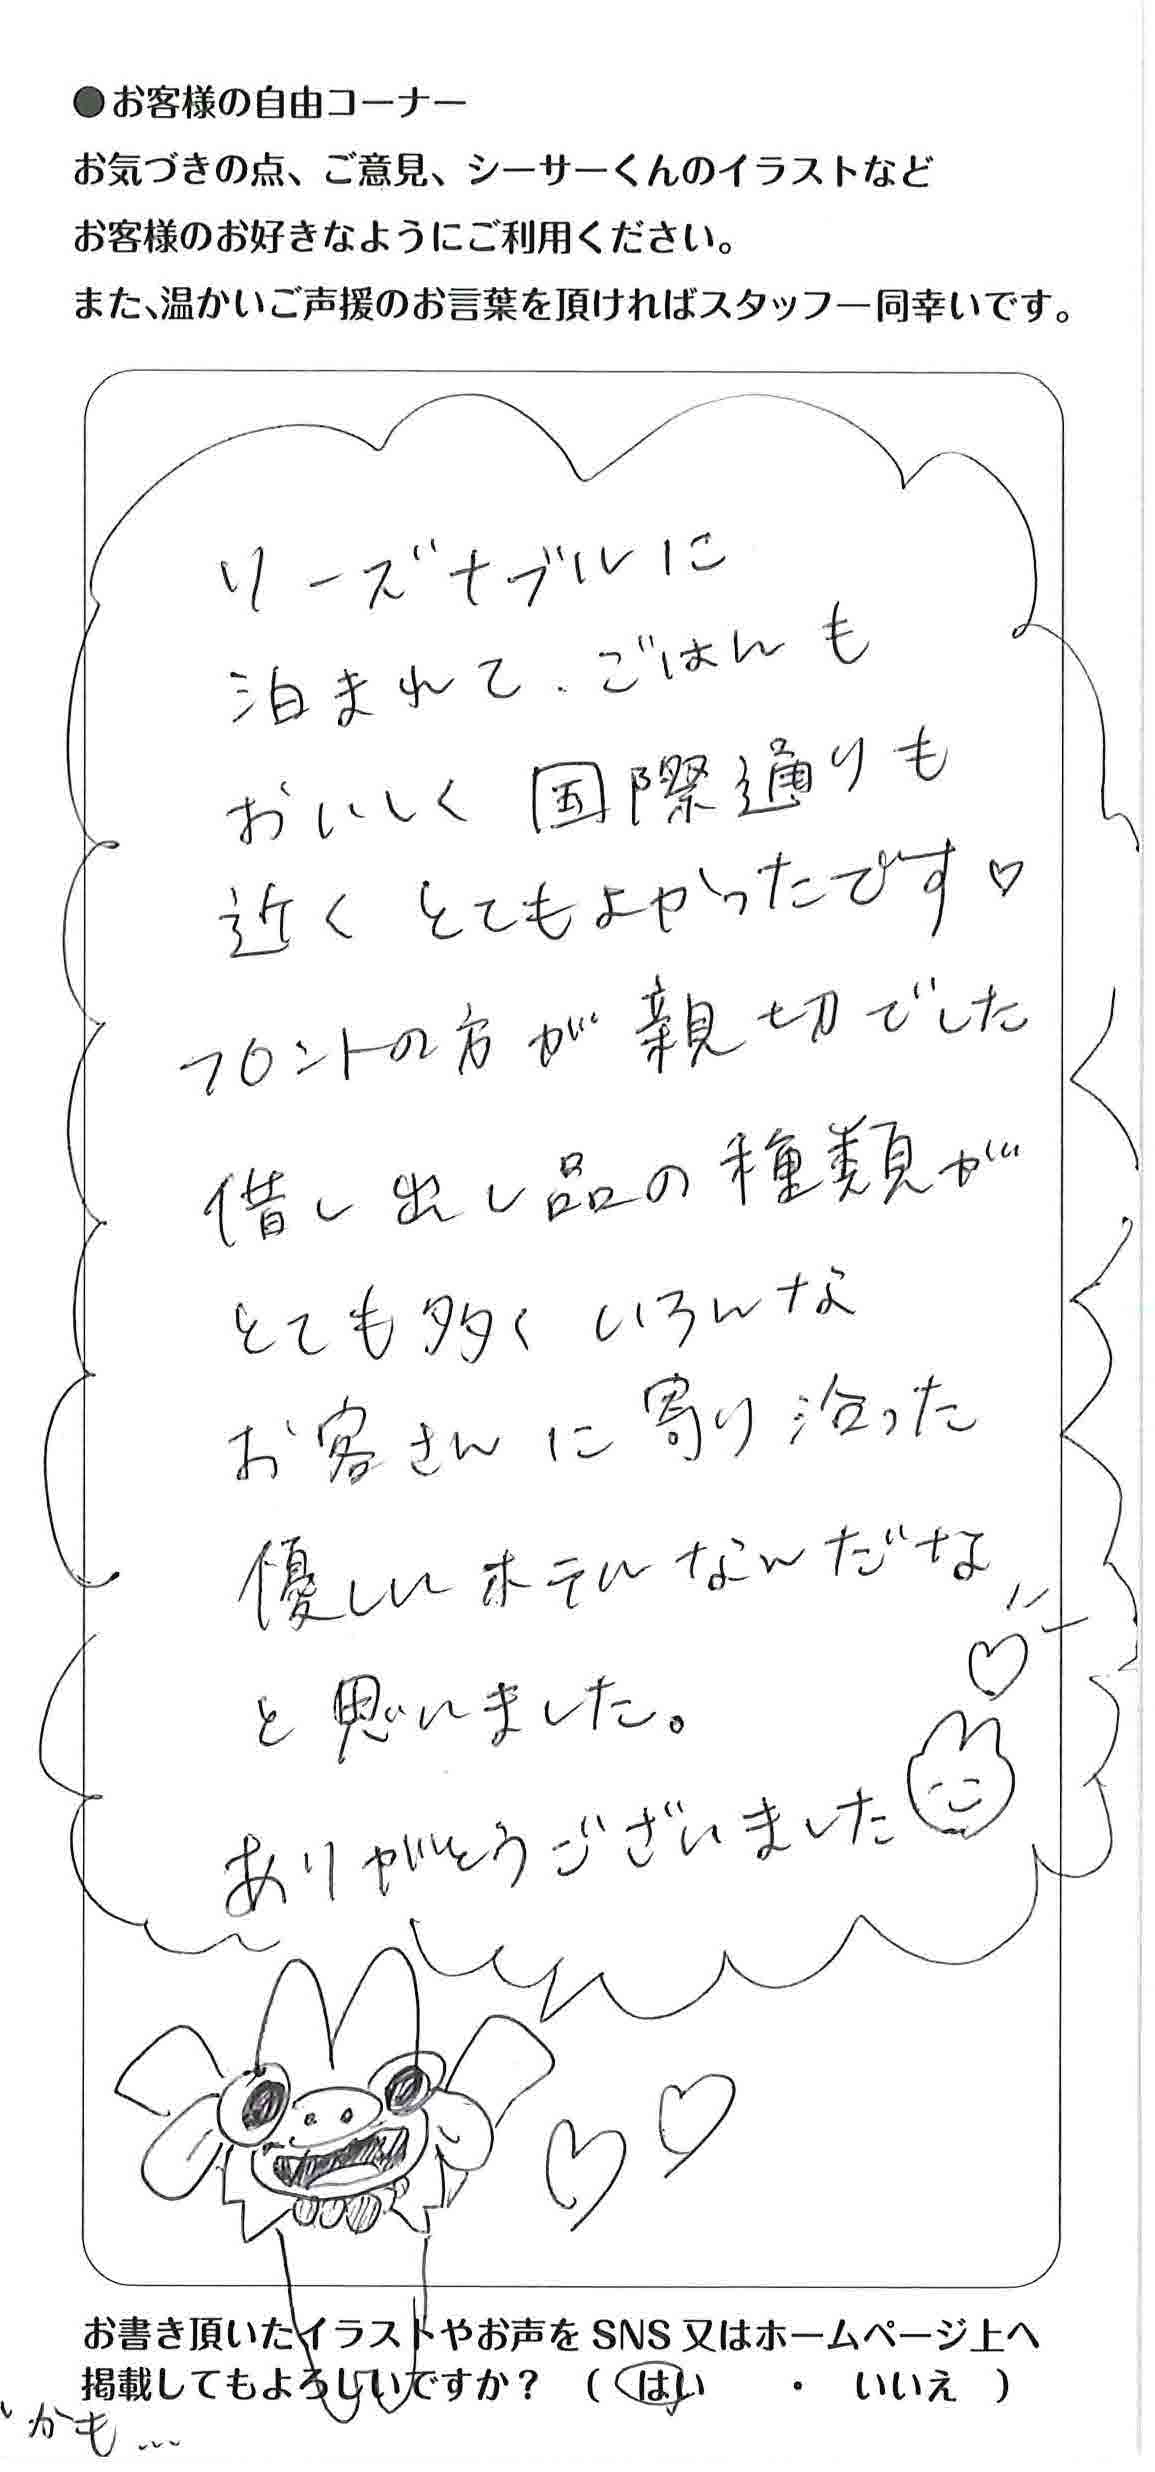 ●お客様の自由コーナー
お気づきの点、ご意見、シーサーくんのイラストなど
お客様のお好きなようにご利用ください。
また、温かいご声援のお言葉を頂ければスタッフ一同幸いです。
リーズナブルに
泊まれて、ごはんも
おいしく国際通りも
近くとてもよかったです♡
フロントの方が親切でした
借し出し品の種類が
とても多くいろんな
お客さんに寄り沿った
優しいホテルなんだな
と思いました。
ありがとうございました
お書き頂いたイラストやお声を SNS 又はホームページ上へ
掲載してもよろしいですか？ （ はい ・ いいえ ）
かも…